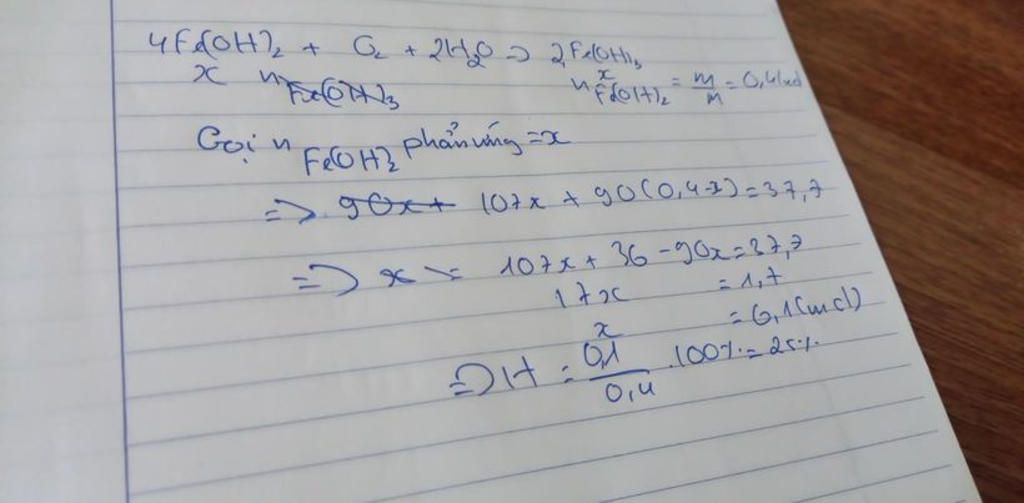 4Fe(OH)₂ + O₂ + 2H₂O => 2Fe(OH)₃
x n Fe(OH)₃ x
n Fe(OH)₂ = m/M = 0,4 mol
Gọi n Fe(OH)₂ phản ứng = x
=> 90x + 107x + 90(0,4-x) = 37,7
=> x = 107x + 36 - 90x = 37,7
17x = 1,7
x = 0,1 (mol)
=> H = 0,1/0,4 . 100% = 25%